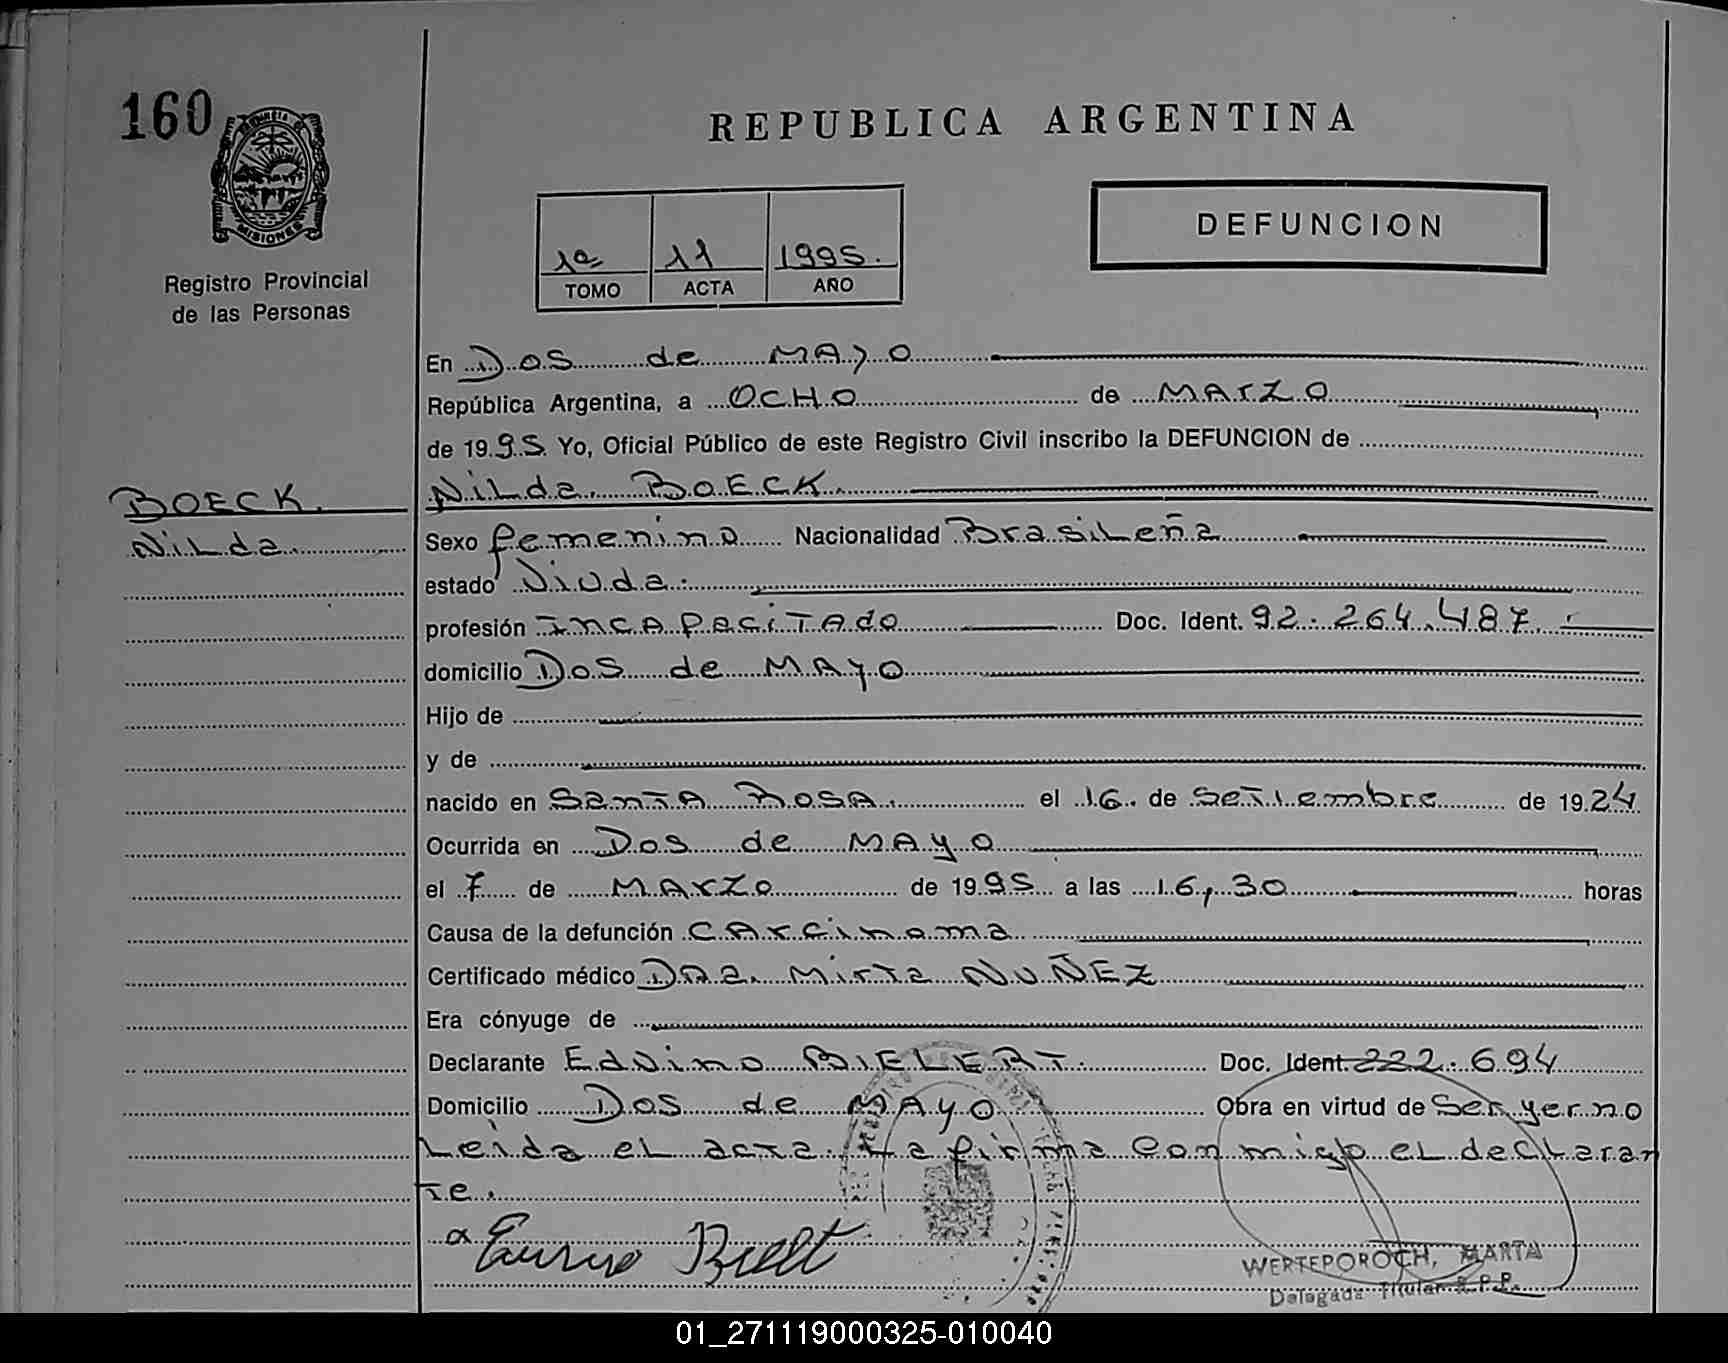 160
PROVINCIA DE
MISIONES
Registro Provincial
de las Personas
REPUBLICA ARGENTINA
DEFUNCION
1º 11 1995.
TOMO ACTA AÑO
En Dos de MAYO
República Argentina, a OCHO de MARZO
de 1995 Yo, Oficial Público de este Registro Civil inscribo la DEFUNCION de
BOECK.
Nilda
Nilda BOECK
Sexo femenino Nacionalidad Brasileña
estado Viuda.
profesión INCApaciTAdo Doc. Ident. 92.264.487.
domicilio Dos de MAYO
Hijo de
y de
nacido en SanTA ROSA. el 16. de SeTiembre de 1924
Ocurrida en Dos de MAYO
el 7 de MARZO de 1995 a las 16,30 horas
Causa de la defunción CARcinoma
Certificado médico DRa. MirTa NUÑEZ
Era cónyuge de
Declarante Edvino BIELERT. Doc. Ident. 222.694
Domicilio Dos de MAYO Obra en virtud de Ser yerno
Leida el acta. La firma conmigo el declaran
te.
WERTEPOROCH, MARTA
Delegada Titular R.P.P.
01_271119000325-010040